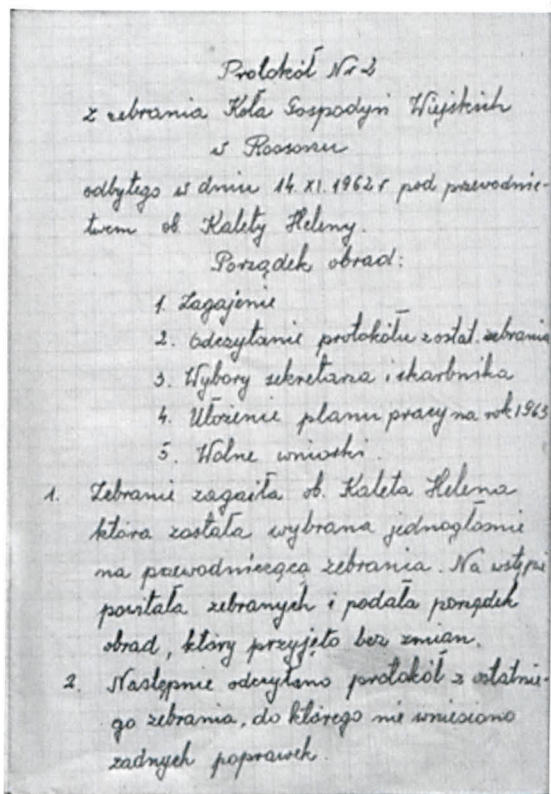 Protokół Nr 2
z zebrania Koła Gospodyń Wiejskich
w Rossonu
odbytego w dniu 14.XI.1962 r pod przewodnic-
twem ob. Kalety Heleny.
Porządek obrad:
1. Zagajenie
2. Odczytanie protokółu z ostat. zebrania
3. Wybory sekretarza i skarbnika
4. Ułożenie planu pracy na rok 1963
5. Wolne wnioski.
1. Zebranie zagaiła ob. Kaleta Helena
która została wybrana jednogłośnie
na przewodniczącą zebrania. Na wstępie
powitała zebranych i podała porządek
obrad, który przyjęto bez zmian.
2. Następnie odczytano protokół z ostatnie-
go zebrania, do którego nie wniesiono
żadnych poprawek.